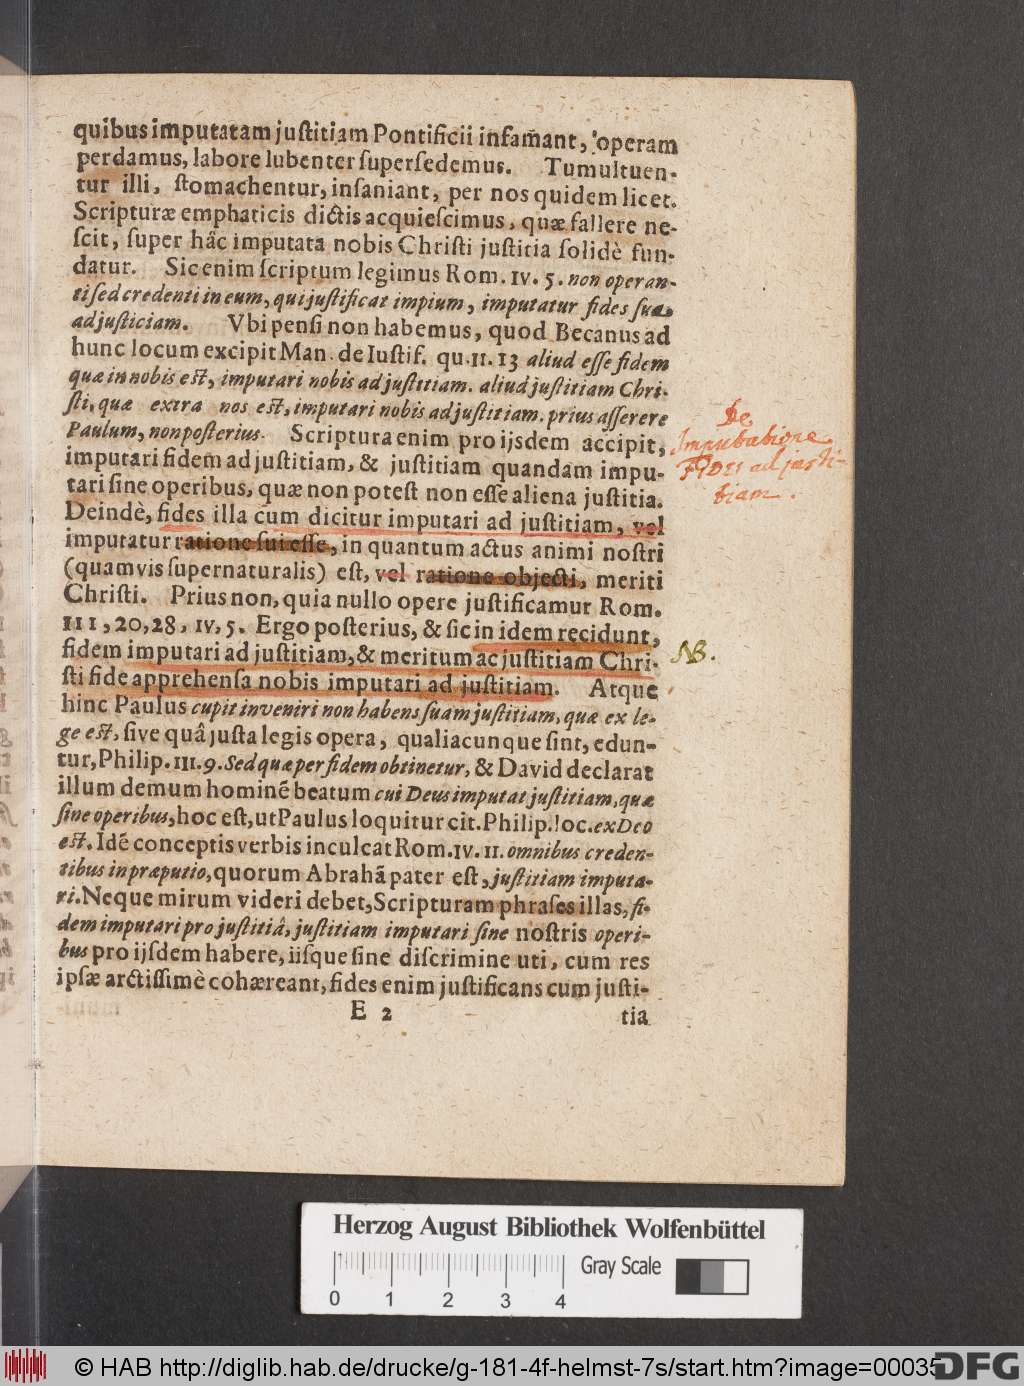 quibus imputatam juſtitiam Pontificii infam̃ant, operam
perdamus, labore lubenter ſuperſedemus. Tumultuen-
tur illi, ſtomachentur, inſaniant, per nos quidem licet.
Scripturæ emphaticis dictis acquieſcimus, quæ fallere ne-
ſcit, ſuper hâc imputata nobis Chriſti juſtitia ſolidè fun-
datur. Sic enim ſcriptum legimus Rom. IV. 5. non operan-
ti ſed credenti in eum, qui juſtificat impium, imputatur fides ſua,
ad juſticiam. Vbi penſi non habemus, quod Becanus ad
hunc locum excipit Man. de Iuſtif. qu. II. 13 aliud eſſe fidem
quæ in nobis eſt, imputari nobis ad juſtitiam. aliud juſtitiam Chri-
ſti, quæ extra nos eſt, imputari nobis ad juſtitiam. prius aſſerere
Paulum, non poſterius. Scriptura enim pro ijsdem accipit,
imputari fidem ad juſtitiam, & juſtitiam quandam impu-
tari ſine operibus, quæ non poteſt non eſſe aliena juſtitia.
Deindè, fides illa cum dicitur imputari ad juſtitiam, vel
imputatur ratione ſui eſſe, in quantum actus animi noſtri
(quamvis ſupernaturalis) eſt, vel ratione objecti, meriti
Chriſti. Prius non, quia nullo opere juſtificamur Rom.
III, 20, 28, IV, 5. Ergo poſterius, & ſic in idem recidunt,
fidem imputari ad juſtitiam, & meritum ac juſtitiam Chri-
ſti fide apprehenſa nobis imputari ad juſtitiam. Atque
hinc Paulus cupit inveniri non habens ſuam juſtitiam, quæ ex le-
ge eſt, ſive quâ juſta legis opera, qualiacunque ſint, edun-
tur, Philip. III. 9. Sed quæ per fidem obtinetur, & David declarat
illum demum hominē beatum cui Deus imputat juſtitiam, quæ
ſine operibus, hoc eſt, ut Paulus loquitur cit. Philip. loc. ex Deo
eſt. Idē conceptis verbis inculcat Rom. IV. II. omnibus creden-
tibus in præputio, quorum Abrahā pater eſt, juſtitiam imputa-
ri. Neque mirum videri debet, Scripturam phraſes illas, fi-
dem imputari pro juſtitiâ, juſtitiam imputari ſine noſtris operi-
bus pro ijſdem habere, iiſque ſine diſcrimine uti, cum res
ipſæ arctiſſimè cohæreant, fides enim juſtificans cum juſti-
E 2 tia
De
Imputatione
FIDEI ad justi-
tiam.
NB.
Herzog August Bibliothek Wolfenbüttel
Gray Scale
0 1 2 3 4
© HAB http://diglib.hab.de/drucke/g-181-4f-helmst-7s/start.htm?image=00035
DFG